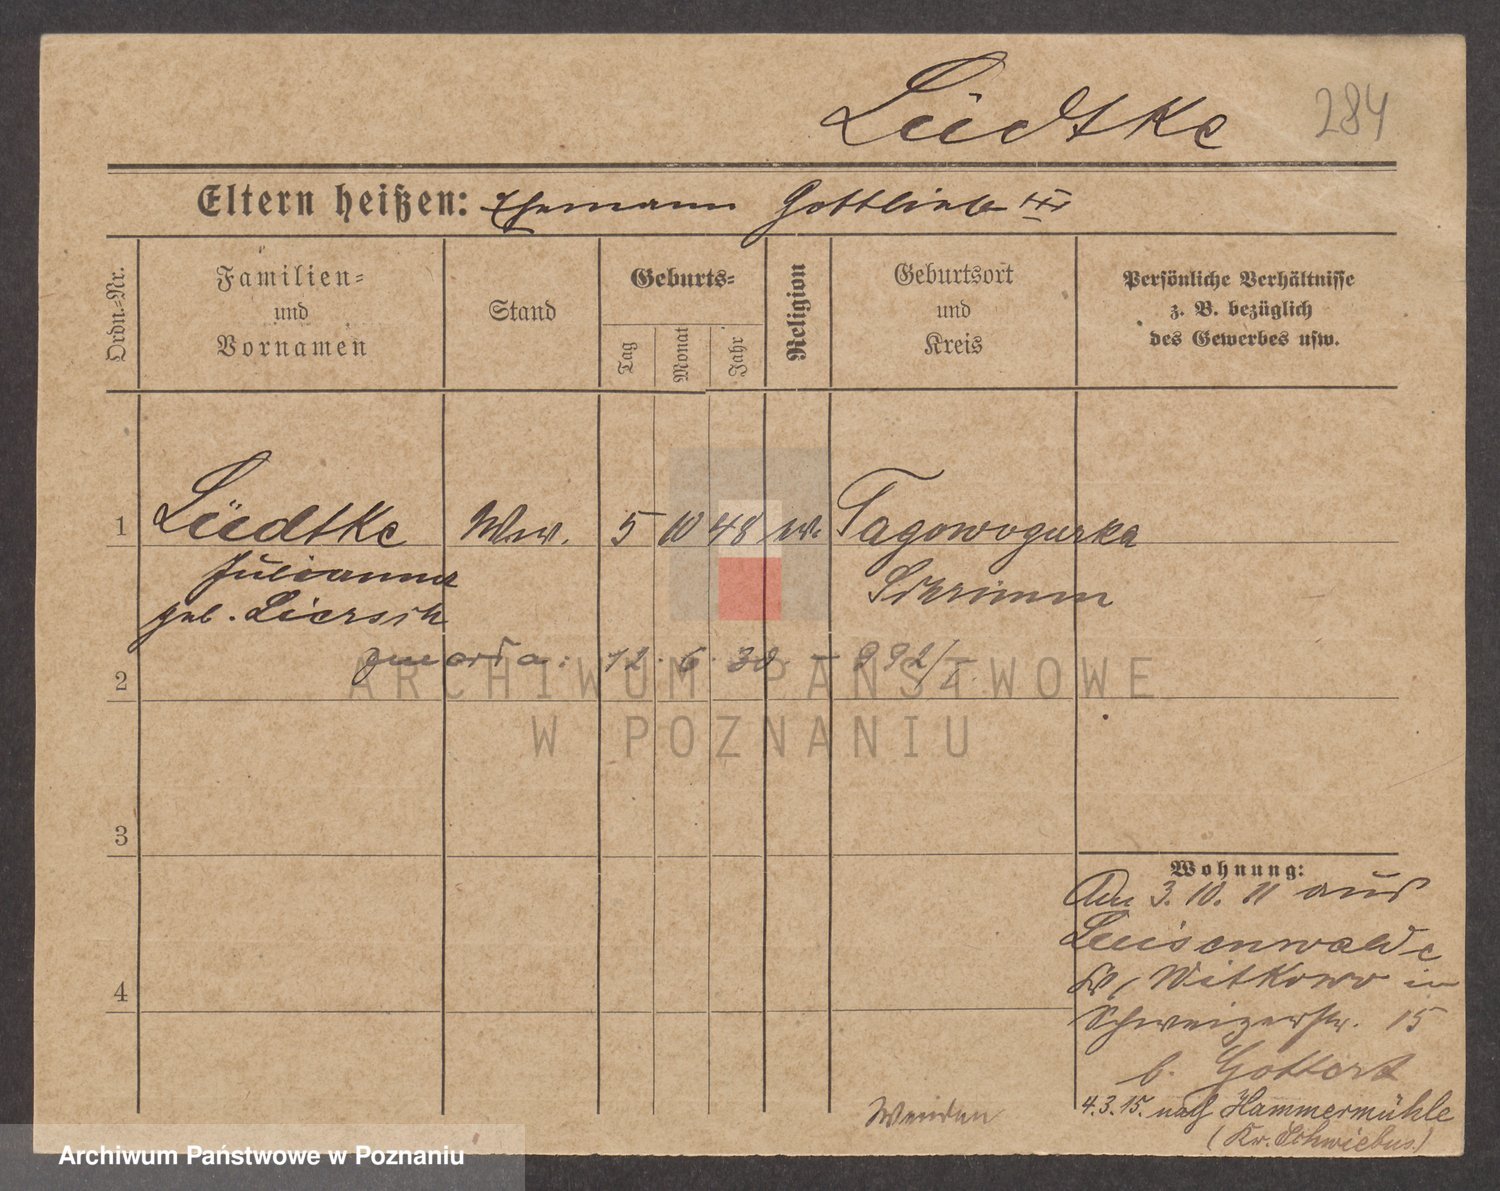 Lüdtke
284
Eltern heißen: Ehemann Gottlieb
Ordn.-Nr.
Familien-
und
Vornamen
Stand
Geburts-
Tag
Monat
Jahr
Religion
Geburtsort
und
Kreis
Persönliche Verhältnisse
z. B. bezüglich
des Gewerbes usw.
1 Lüdtke Ww. 5 10 48 ev. Tagowogurka
Julianna Schrimm
geb. Liersch
zmarła: 12. 6. 30. – 992/I.
2
3
4
Wohnung:
Am 3. 10. 11 aus
Luisenwalde
Kr. Witkowo in
Schweizerstr. 15
b. Gottert
4.3.15. nach Hammermühle
(Kr. Schwiebus.)
Wenden
ARCHIWUM PAŃSTWOWE
W POZNANIU
Archiwum Państwowe w Poznaniu